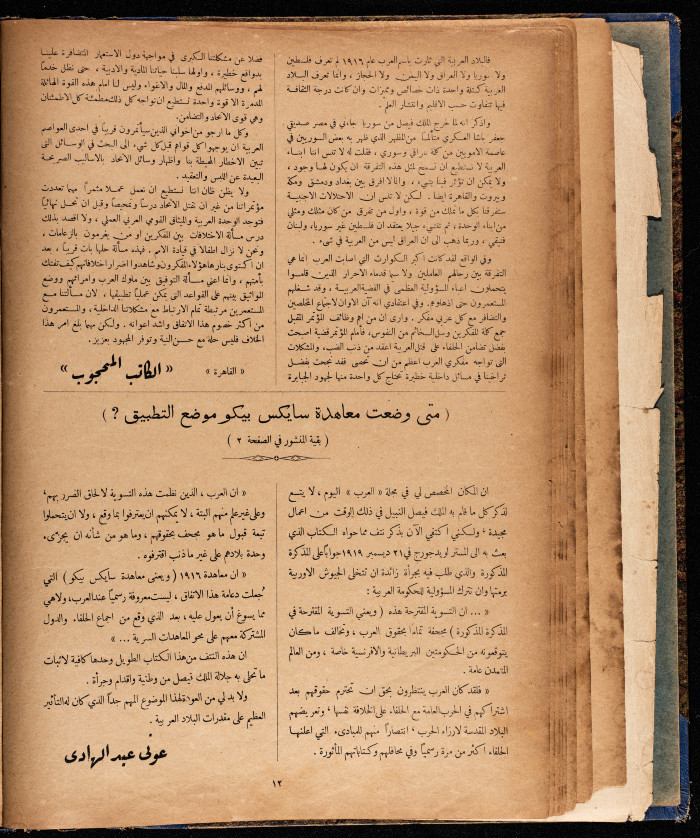 فالبلاد العربية التي ثارت باسم العرب عام ١٩١٦ لم تعرف فلسطين
ولا سوريا ولا العراق ولا اليمن ولا الحجاز ، وانما تعرف البلاد
العربية ككتلة واحدة ذات خصائص ومميزات وان كانت درجة الثقافة
فيها تتفاوت حسب الاقليم وانتشار العلم .
واذكر انه لما خرج الملك فيصل من سوريا جاءني في مصر صديقي
جعفر باشا العسكري متألماً من المظهر الذي ظهر به بعض السوريين في
عاصمة الامويين من كلة عراقي وسوري ، فقلت له لا تنس اننا ابناء
العربية لا نستطيع ان نسمح لمثل هذه التفرقة ان يكون لها وجود ،
ولا يمكن ان تؤثر فينا بشيء ، وانا لا افرق بين بغداد ودمشق ومكة
وبيروت والقاهرة ايضا . لكن لا تنس ان الاحتلالات الاجنبية
ستفرقنا بكل ما تملك من قوة ، واول من تفرق من كان مثلك ومثلي
من ابناء الوحدة ، ثم تنشيء جيلا يعتقد ان فلسطين غير سوريا ، ولبنان
فنبقي ، وربما ذهب الى ان العراق ليس من العربية في شيء .
وفي الواقع لقد كانت اكبر الكوارث التي اصابت العرب انما هي
التفرقة بين رجالهم العاملين ولا سيما قدماء الاحرار الذين قاموا
يتحملون اعباء المسؤولية العظمى في القضية العربية ، وقد شغلهم
المستعمرون حتى اذهلوهم وفي اعتقادي انه آن الاوان لاجماع المخلصين
والتضافر مع كل عربي مفكر . وارى ان من اهم وظائف المؤتمر المقبل
جمع كلة المفكرين وسل السخائم من النفوس، فأمام المؤتمر قضية اصبحت
بفضل تضامن الحلفاء على قتل العربية اعقد من ذنب الضب ، والمشكلات
التي تواجه مفكري العرب اعظم من ان تحصى فقد نجحت بفضل
تراخينا في مسائل داخلية خطيرة تحتاج كل واحدة منها لجهود الجبابرة
فضلا عن مشكلتنا الكبرى في مواجهة دول الاستعمار المتضافرة علينا
بدوافع خطيرة ، واولها سلبنا حياتنا المادية والادبية ، حتى نظل خدماً
لهم ، ووسائلهم المدفع والمال والاغواء وليس لنا امام هذه القوة الهائلة
المدمرة الا قوة واحدة نستطيع ان نواجه كل ذلك مطمئنة كل الاطمئنان
وهي قوى الاتحاد والتضامن .
وكل ما ارجو من اخواني الذين سيأتمرون قريباً في احدى العواصم
العربية ان يوجهوا كل قواهم قبل كل شيء الى البحث في الوسائل التي
تبين الاخطار المحيطة بنا واظهار وسائل الاتحاد بالاساليب الصريحة
البعيدة عن اللبس والتعقيد .
ولا يظن ظان اننا نستطيع ان نعمل عملا مثمراً مهما تعددت
مؤتمراتنا من غير ان نقتل الاتحاد درساً وتمحيصاً وقبل ان نحل نهائياً
فتوجد الوحدة العربية والميثاق القومي العربي العملي ، ولا اقصد بذلك
درس مسألة الاختلافات بين المفكرين او من يغرمون بالزعامات ،
ونحن لا نزال اطفالا في قيادة الامم . فهذه مسألة حلها بات قريبا ، بعد
ان اكتوى بنارها هؤلاء المفكرون وشاهدوا اضرار اختلافاتهم كيف تفتك
بأمتهم ، وانما اعني مسألة التوفيق بين ملوك العرب وامرائهم ووضع
المواثيق بينهم على القواعد التي يمكن عملياً تطبيقها ، لان مسألتنا مع
المستعمرين مرتبطة تمام الارتباط مع مشكلاتنا الداخلية ، والمستعمرون
من اكثر خصوم هذا الاتفاق واشد اعوانه . ولكن مهما بلغ امر هذا
الخلاف فليس حله مع حسن النية وتوفر المجهود بعزيز .
« القاهرة » « الكاتب المحجوب »
( متى وضعت معاهدة سايكس بيكو موضع التطبيق ؟ )
( بقية المنشور في الصفحة ٢ )
ان المكان المخصص لي في مجلة « العرب » اليوم ، لا يتسع
لذكر كل ما قام به الملك فيصل النبيل في ذلك الوقت من اعمال
مجيدة ، ولكنني اكتفي الآن بذكر نتف مما حواه الكتاب الذي
بعث به الى المستر لويد جورج في ٢١ ديسمبر ١٩١٩ جواباً على المذكرة
المذكورة والذي طلب فيه بجرأة زائدة ان تتخلى الجيوش الاوربية
برمتها وان تترك المسؤولية للحكومة العربية :
« ... ان التسوية المقترحة هذه ( ويعني التسوية المقترحة في
المذكرة المذكورة ) مجحفة تماماً بحقوق العرب ، وتخالف ما كان
يتوقعونه من الحكومتين البريطانية والافرنسية خاصة ، ومن العالم
المتمدن عامة .
« فلقد كان العرب ينتظرون بحق ان تحترم حقوقهم بعد
اشتراكهم في الحرب العامة مع الحلفاء على الخلافة نفسها ، وتعريضهم
البلاد المقدسة لارزاء الحرب ، انتصاراً منهم للمبادىء التي اعلنها
الحلفاء اكثر من مرة رسمياً وفي محافلهم وكتاباتهم المأثورة .
« ان العرب ، الذين نظمت هذه التسوية لالحاق الضرر بهم ،
وعلى غير علم منهم البتة ، لا يمكنهم ان يعترفوا بما وقع ، ولا ان يتحملوا
تبعة قبول ما هو مجحف بحقوقهم ، وما هو من شأنه ان يجزىء
وحدة بلادهم على غير ما ذنب اقترفوه .
« ان معاهدة ١٩١٦ ( ويعني معاهدة سايكس بيكو ) التي
جعلت دعامة هذا الاتفاق ، ليست معروفة رسمياً عند العرب ، ولا هي
مما يسوغ أن يعول عليه ، بعد الذي وقع من اجماع الحلفاء والدول
المشتركة معهم على محو المعاهدات السرية ... »
ان هذه النتف من هذا الكتاب الطويل وحدها كافية لاثبات
ما تحلى به جلالة الملك فيصل من وطنية واقدام وجرأة .
ولا بد لي من العودة لهذا الموضوع المهم جداً الذي كان له التأثير
العظيم على مقدرات البلاد العربية .
عوني عبد الهادي
١٢